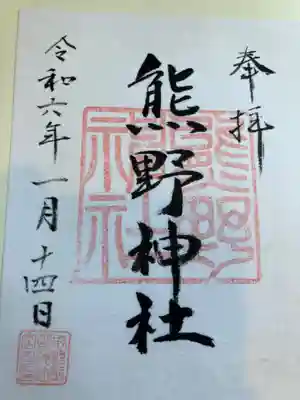 奉拝
熊野神社
令和六年一月十四日